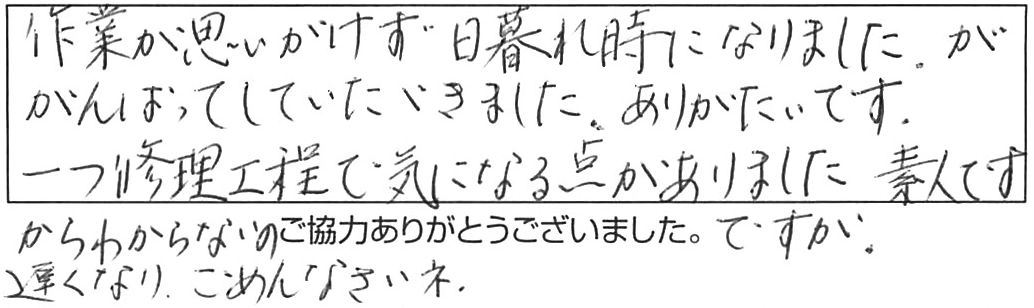 作業が思いがけず日暮れ時になりました。が
がんばってしていただきました。ありがたいです。
一つ修理工程で気になる点がありました 素人です
からわからないのご協力ありがとうございました。ですが。
遅くなり、ごめんなさいネ。